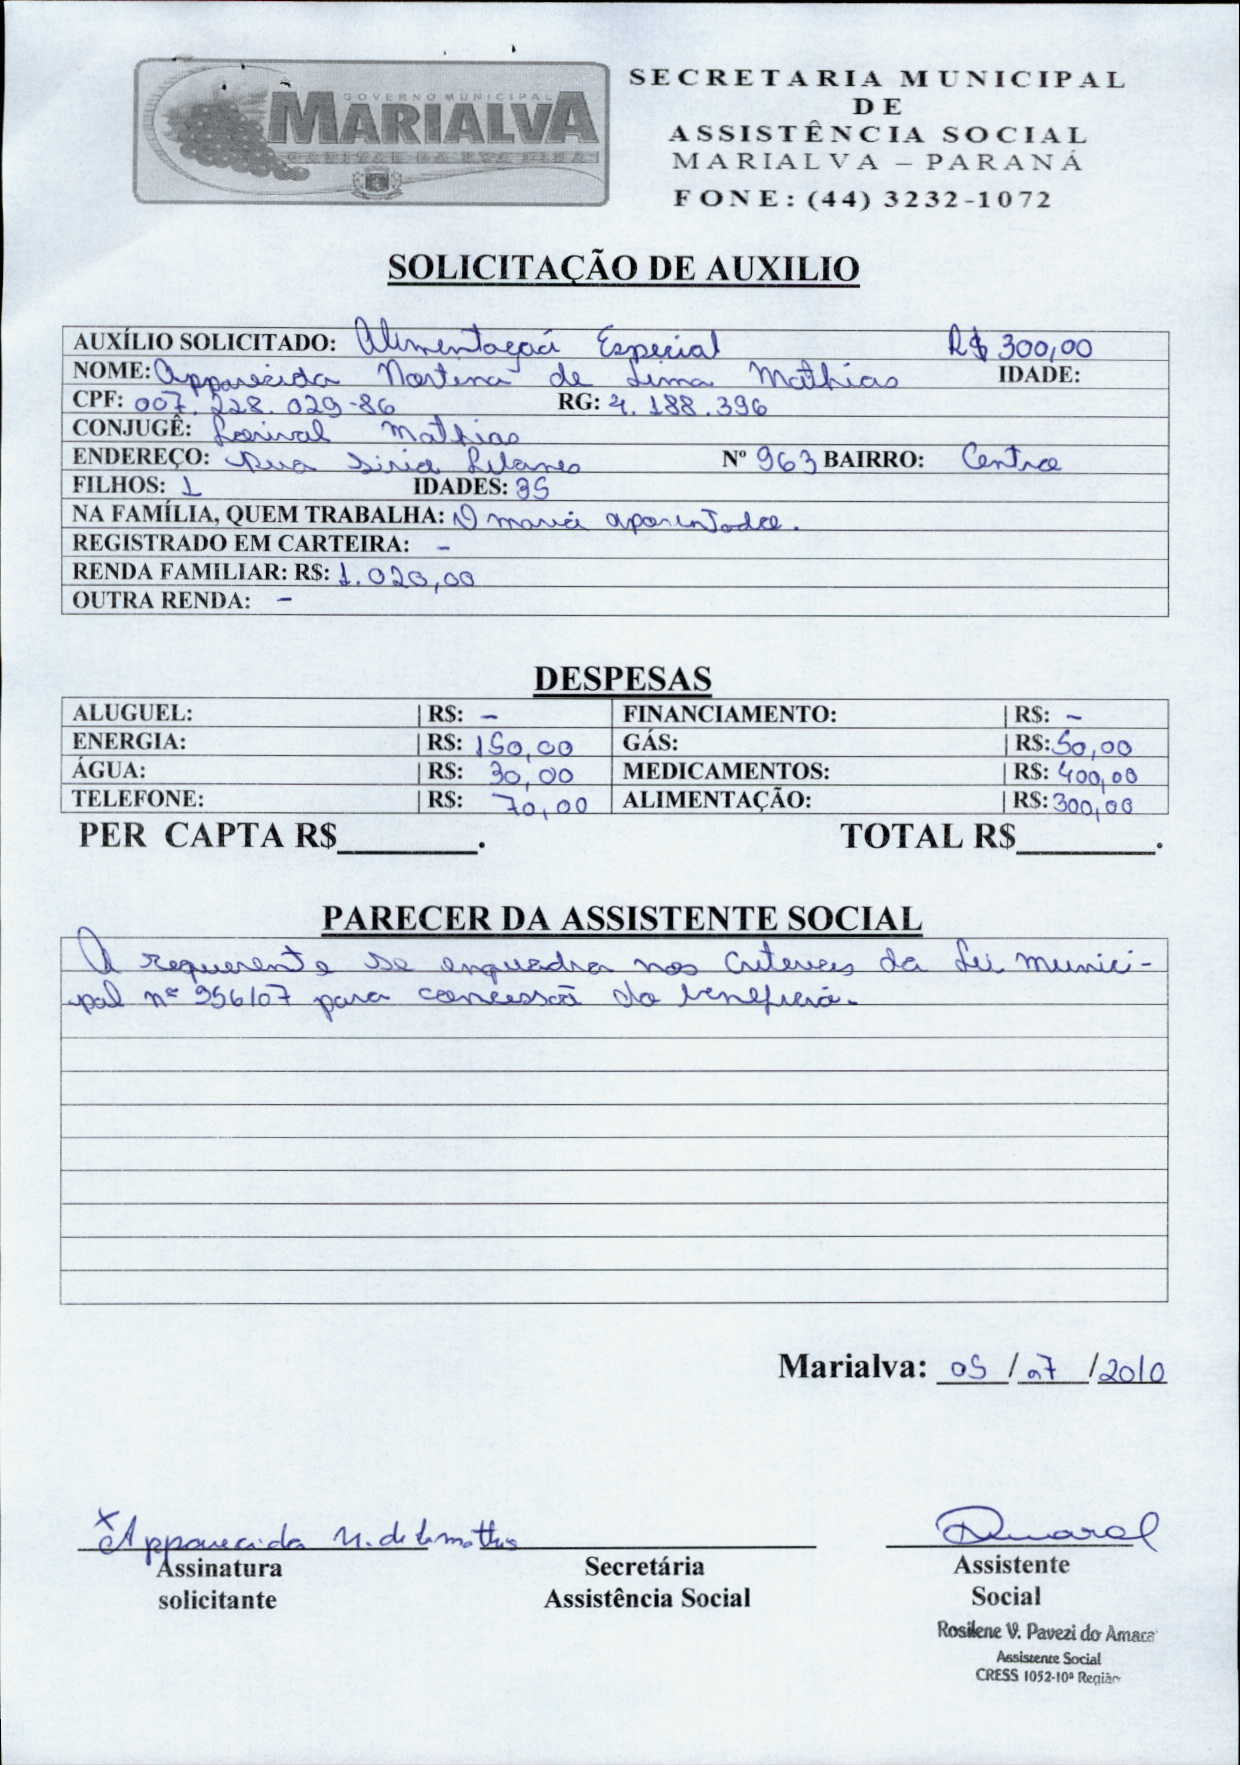 GOVERNO MUNICIPAL
MARIALVA
CAPITAL DA UVA FINA
SECRETARIA MUNICIPAL
DE
ASSISTÊNCIA SOCIAL
MARIALVA – PARANÁ
FONE: (44) 3232-1072
SOLICITAÇÃO DE AUXILIO
AUXÍLIO SOLICITADO: Alimentação Especial R$ 300,00
NOME: Apparecida de Lima Mathias IDADE:
CPF: 007.228.029-86 RG: 4.188.396
CONJUGÊ: Lorival Mathias
ENDEREÇO: Rua Nº 963 BAIRRO: Centro
FILHOS: 1 IDADES: 35
NA FAMÍLIA, QUEM TRABALHA: O marido aposentado.
REGISTRADO EM CARTEIRA: -
RENDA FAMILIAR: R$: 1.020,00
OUTRA RENDA: -
DESPESAS
ALUGUEL: | R$: - FINANCIAMENTO: | R$: -
ENERGIA: | R$: 150,00 GÁS: | R$: 50,00
ÁGUA: | R$: 30,00 MEDICAMENTOS: | R$: 400,00
TELEFONE: | R$: 70,00 ALIMENTAÇÃO: | R$: 300,00
PER CAPTA R$________. TOTAL R$________.
PARECER DA ASSISTENTE SOCIAL
A requerente se enquadra nos criterios da Lei munici-
pal nº 956/07 para concessão do beneficio.
Marialva: 05 / 07 / 2010
x Apparecida M. de L. Mathias
Assinatura Secretária Assistente
solicitante Assistência Social Social
Rosilene V. Pavezi do Amaral
Assistente Social
CRESS 1052-10ª Região